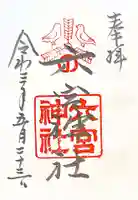 奉拝
六宮神社
六宮
神社
令和三年五月二十三日